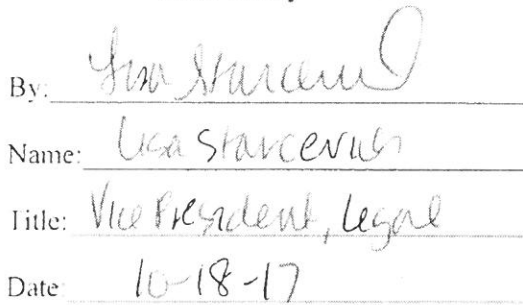 By: Lisa Starcevich
Name: Lisa Starcevich
Title: Vice President, Legal
Date 10-18-17